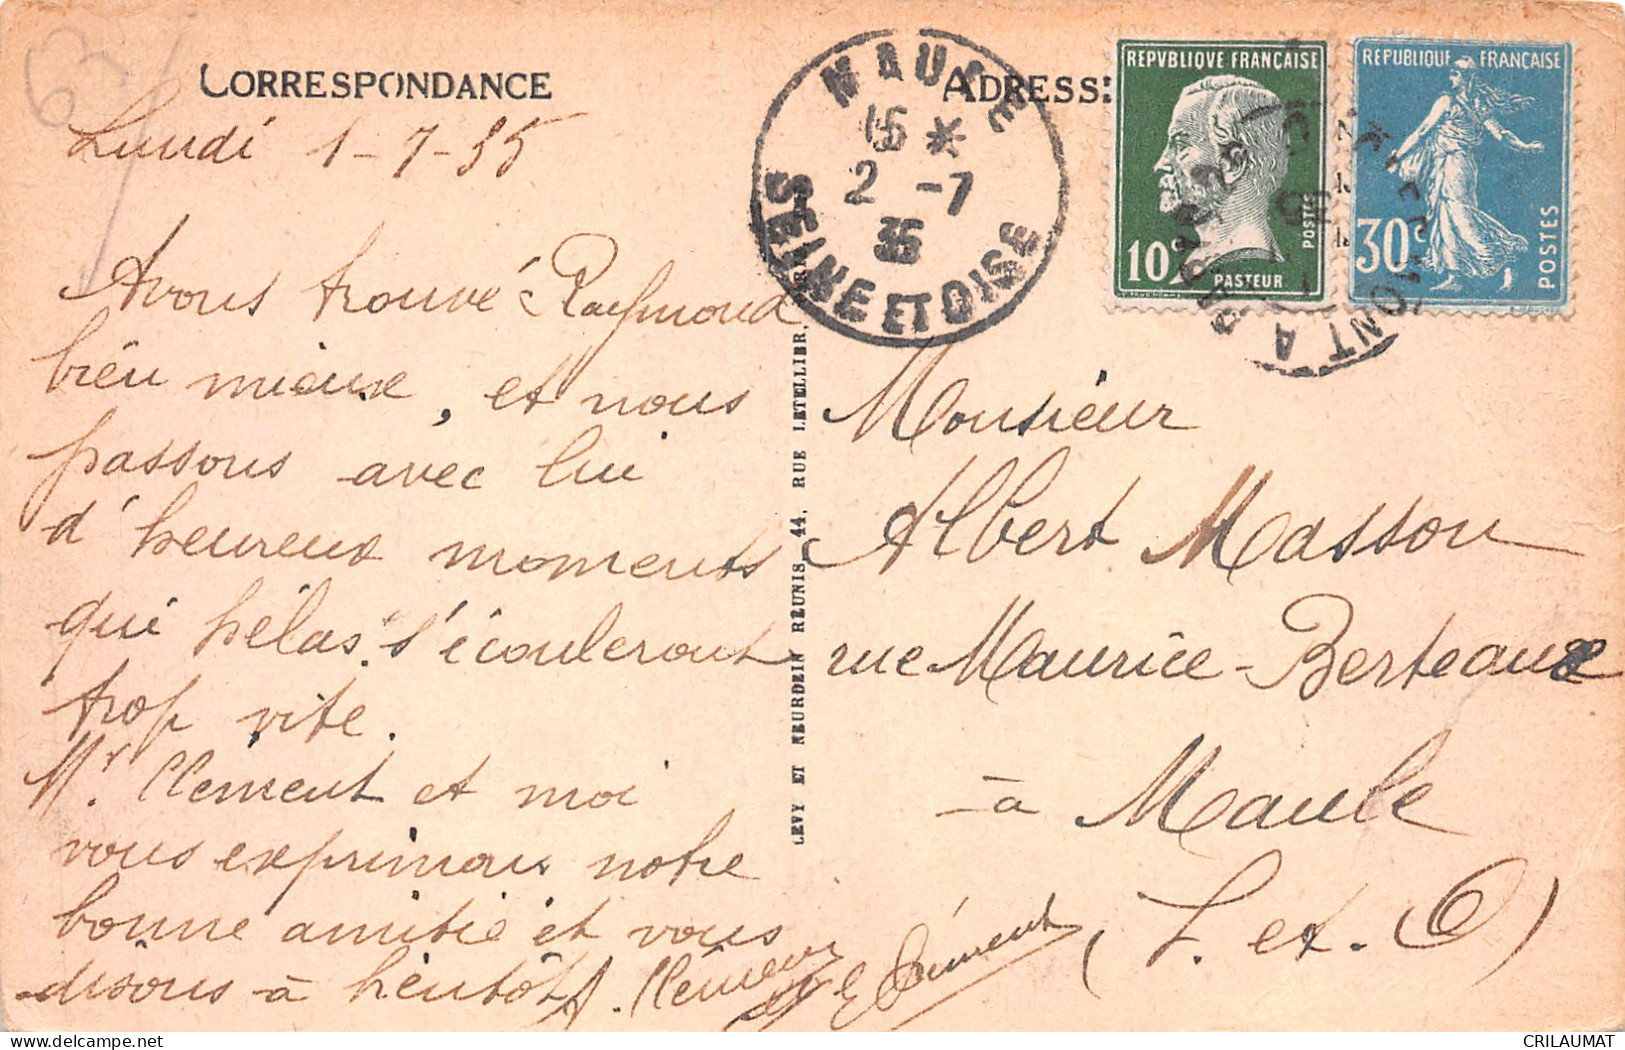 CORRESPONDANCE
Lundi 1-7-35
Avons trouvé Raymond
bien mieux, et nous
passons avec lui
d'heureux moments
qui hélas s'écouleront
trop vite.
Mr Clément et moi
vous exprimons notre
bonne amitié et vous
disons à bientôt A. Clément
E Clément
LEVY ET NEURDEIN RÉUNIS, 44, RUE LETELLIER,
MAULE
15 *
2 -7
35
SEINE ET OISE
ADRESSE
REPVBLIQVE FRANÇAISE
10c
POSTES
PASTEUR
REPUBLIQUE FRANÇAISE
30c
POSTES
Monsieur
Albert Masson
rue Maurice-Berteaux
à Maule
(S. et. O)
CRILAUMAT